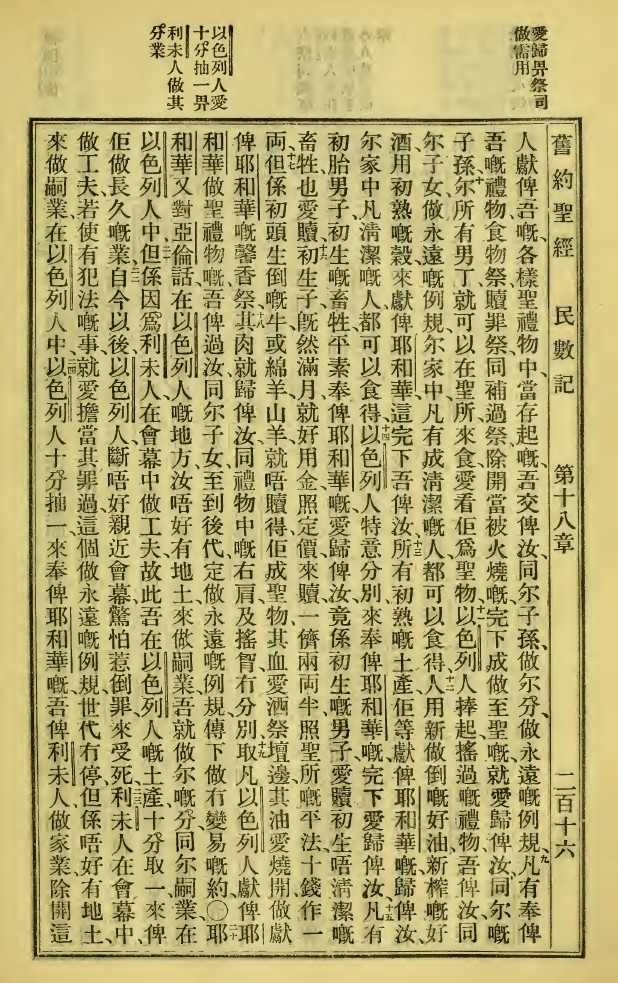 愛歸畀祭司
做需用
以色列人愛
十分抽一畀
利未人做其
分業
舊約聖經 民數記 第十八章 二百十六
人獻俾吾嘅、各樣聖禮物中當存起嘅、吾交俾汝、同尔子孫、做尔分、做永遠嘅例規、九凡有奉俾
吾嘅禮物、食物祭、贖罪祭、同補過祭、除開當被火燒嘅、完下成做至聖嘅、就愛歸俾汝、同尔嘅
子孫、十尔所有男丁、就可以在聖所來食、愛看佢為聖物、十一以色列人捧起搖過嘅禮物、吾俾汝、同
尔子女、做永遠嘅例規、尔家中凡有成清潔嘅人、都可以食得、十二人用新做倒嘅好油、新榨嘅好
酒、用初熟嘅穀、來獻俾耶和華、這完下吾俾汝、十三所有初熟嘅土產、佢等獻俾耶和華嘅、歸俾汝、
尔家中凡清潔嘅人、都可以食得、十四以色列人特意分別來奉俾耶和華嘅、完下愛歸俾汝、十五凡有
初胎男子、初生嘅畜牲、平素奉俾耶和華嘅、愛歸俾汝、竟係初生嘅男子、愛贖、初生唔清潔嘅
畜牲、也愛贖、十六初生子、旣然滿月、就好用金照定價來贖、一儕兩両半、照聖所嘅平法、十錢作一
両、十七但係初頭生倒嘅牛、或綿羊山羊、就唔贖得、佢成聖物、其血愛洒祭壇邊、其油愛燒開、做獻
俾耶和華嘅馨香祭、十八其肉就歸俾汝、同禮物中嘅右肩、及搖胷冇分別、十九取凡以色列人獻俾耶
和華做聖禮物嘅、吾俾過汝、同尔子女、至到後代、定做永遠嘅例規、傳下做冇變易嘅約、〇二十耶
和華又對亞倫話、在以色列人嘅地方、汝唔好有地土來做嗣業、吾就做尔嘅分、同尔嗣業、在
以色列人中、二一但係因為利未人在會幕中做工夫、故此吾在以色列人嘅土產十分取一、來俾
佢做長久嘅業、二二自今以後、以色列人斷唔好親近會幕、驚怕惹倒罪來受死、二三利未人在會幕中、
做工夫、若使有犯法嘅事、就愛擔當其罪過、這個做永遠嘅例規、世代冇停、但係唔好有地土、
來做嗣業在以色列人中、二四以色列人十分抽一、來奉俾耶和華嘅、吾俾利未人做家業、除開這